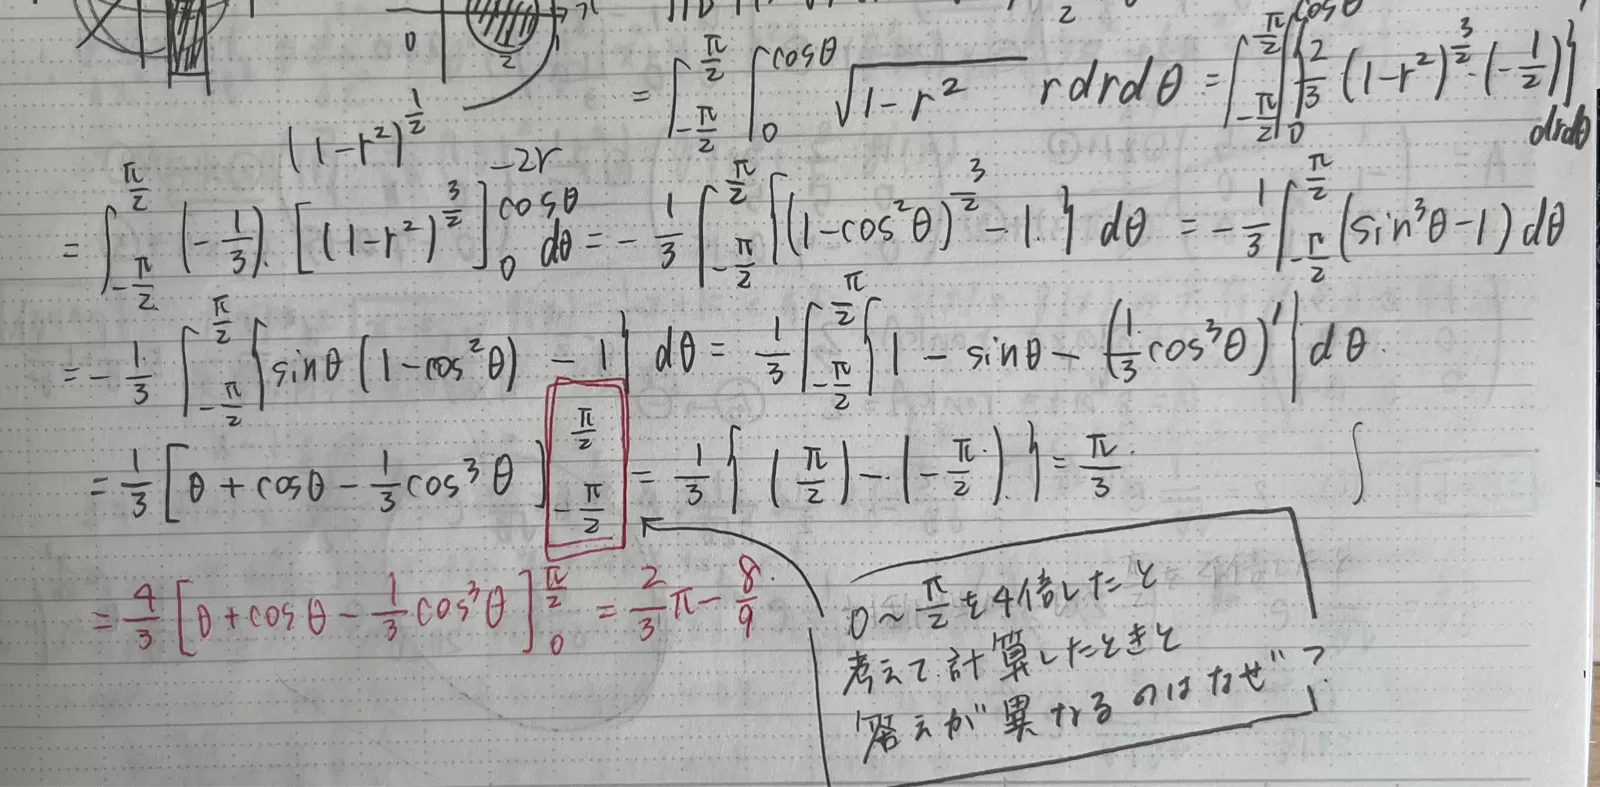 0
2
(1-r²)^{1/2}
-2r
= ∫_{-π/2}^{π/2} ∫_0^{cosθ} √(1-r²) r dr dθ = ∫_{-π/2}^{π/2} ∫_0^{cosθ} { 2/3 (1-r²)^{3/2}・(-1/2) } dr dθ
= ∫_{-π/2}^{π/2} (-1/3)・[(1-r²)^{3/2}]_0^{cosθ} dθ = -1/3 ∫_{-π/2}^{π/2} {(1-cos²θ)^{3/2} - 1} dθ = -1/3 ∫_{-π/2}^{π/2} (sin³θ-1) dθ
= -1/3 ∫_{-π/2}^{π/2} {sinθ(1-cos²θ) - 1} dθ = 1/3 ∫_{-π/2}^{π/2} {1 - sinθ - (1/3 cos³θ)'} dθ
= 1/3 [θ + cosθ - 1/3 cos³θ]_{-π/2}^{π/2} = 1/3 {(π/2) - (-π/2)} = π/3
∫
= 4/3 [θ + cosθ - 1/3 cos³θ]_0^{π/2} = 2/3 π - 8/9
0~π/2を4倍したと
考えて計算したときと
答えが異なるのはなぜ?